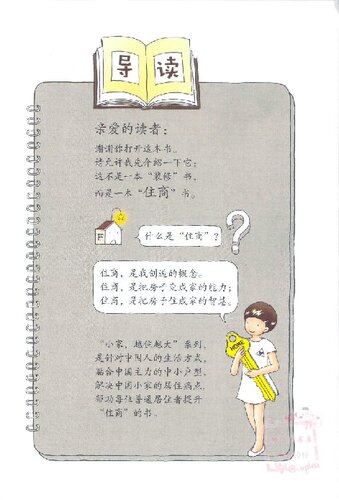 导读
亲爱的读者：
谢谢你打开这本书。
请允许我先介绍一下它：
这不是一本“装修”书，
而是一本“住商”书。
什么是“住商”？
住商，是我创造的概念。
住商，是把房子变成家的能力；
住商，是把房子住成家的智慧。
“小家，越住越大”系列，
是针对中国人的生活方式，
融合中国主力的中小户型，
解决中国小家的居住痛点，
帮助每位普通居住者提升
“住商”的书。
HOME